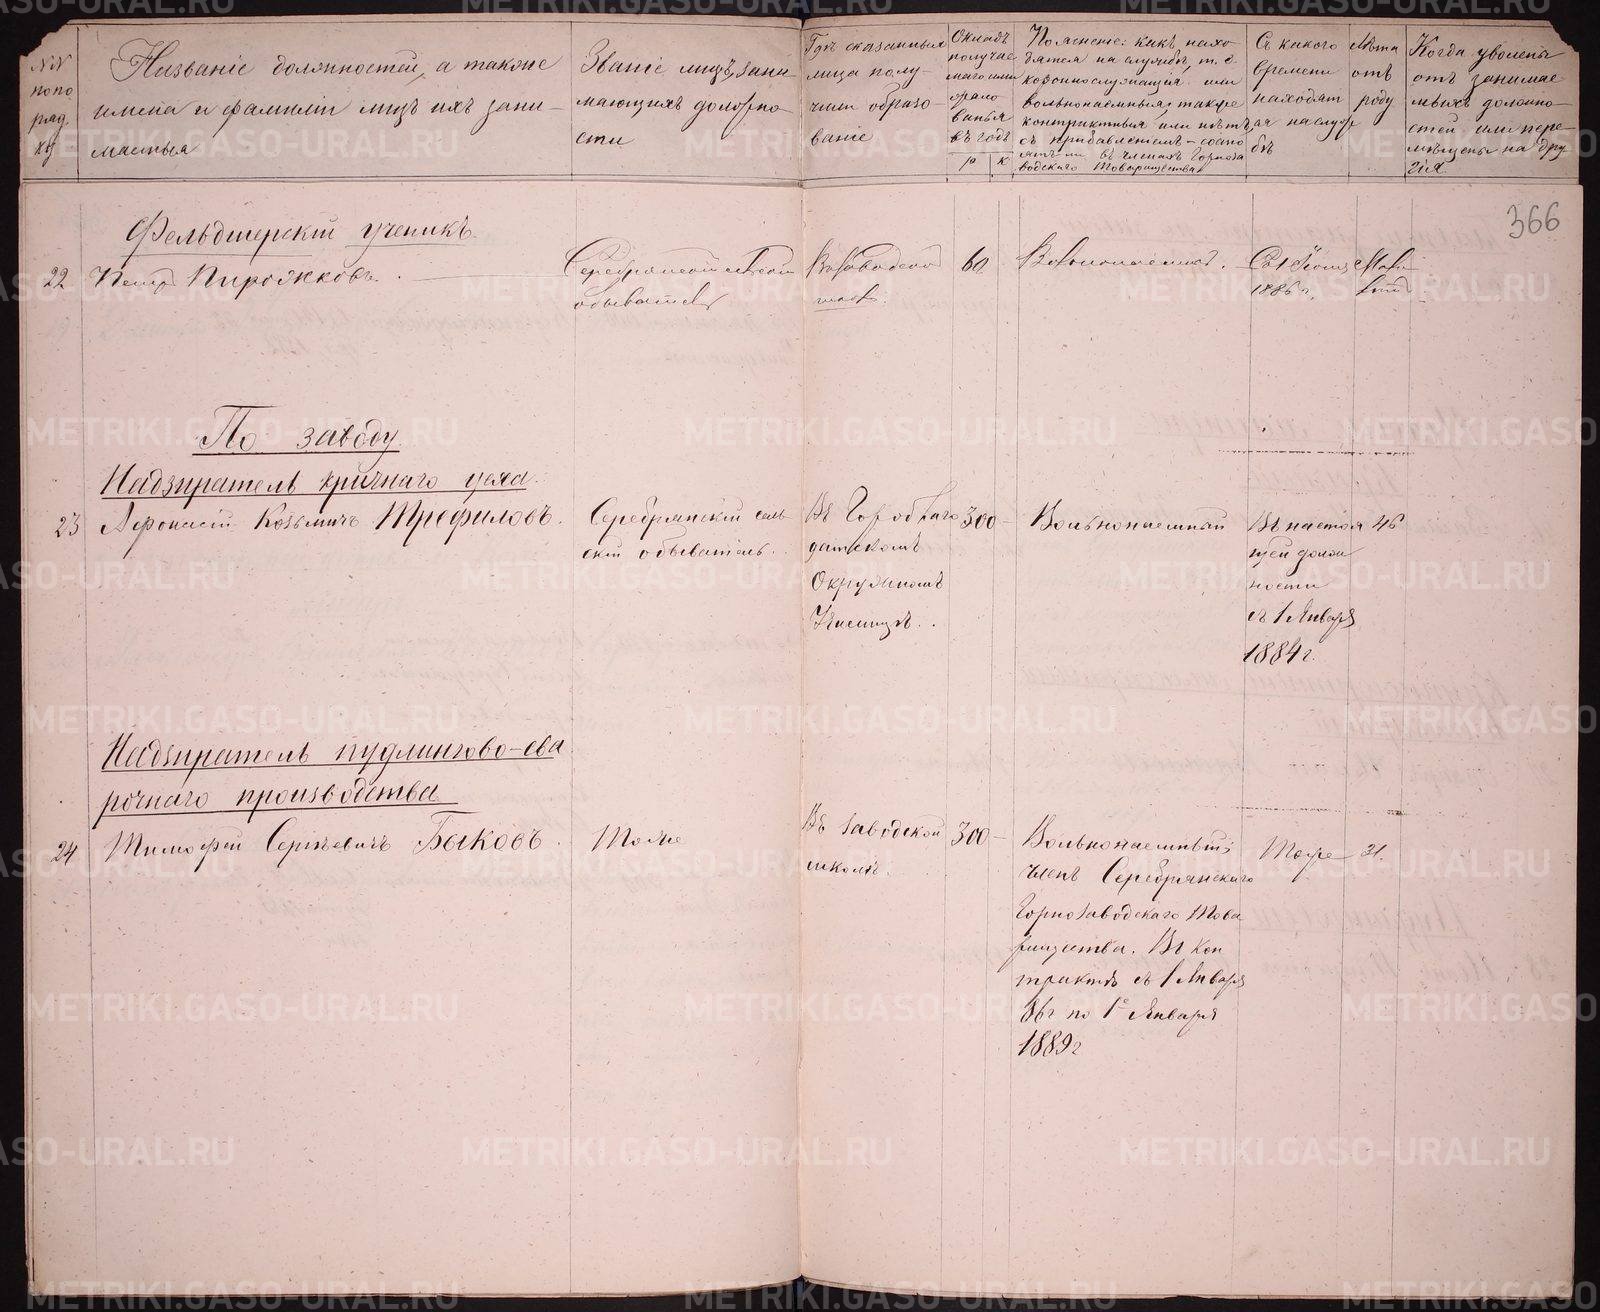 №№ по порядку
Названіе должностей, а также
имена и фамиліи лицъ ихъ зани-
маемыя
Званіе лицъ, зани-
мающихъ должно-
сти
Гдѣ сказанныя
лица полу-
чили образо-
ваніе
Окладъ
получае-
маго ими
жало-
ванья
въ годъ
р к
Поясненіе: какъ нахо-
дятся на службѣ, т. е.
казеннослужащія или
вольнонаемныя, также
контрактныя или нѣтъ,
съ прибавленіемъ – состо-
ятъ ли въ членахъ Горноза-
водскаго Товарищества
Съ какого
времени
находят
ся на служ
бѣ
Лѣта
отъ
роду
Когда уволены
отъ занимае-
мыхъ должно-
стей или пере-
мѣщены на дру-
гія
366
Фельдшерскій ученикъ
22 Петръ Пирожковъ.
Серебрянскій сельскій
обыватель
Въ заводской
школѣ.
60
Вольнонаемный.
Съ 1
1886 г.
По заводу
Надзиратель кричнаго цеха.
23 Афонасій Козьмичъ Трефиловъ.
Серебрянскій сель-
скій обыватель.
Въ Гороблаго
датскомъ
Окружномъ
Училищѣ.
300 –
Вольнонаемный
Въ настоя
щей долж
ности
съ 1 Января
1884 г.
46
Надзиратель пудлингово-сва
рочнаго производства
24 Тимофей Сергѣевичъ Быковъ.
Тоже
Въ заводской
школѣ.
300 –
Вольнонаемный;
членъ Серебрянскаго
Горнозаводскаго Това
рищества. Въ кон
трактѣ съ 1 Января
86 г по 1е Января
1889 г
Тоже
31.
METRIKI.GASO-URAL.RU